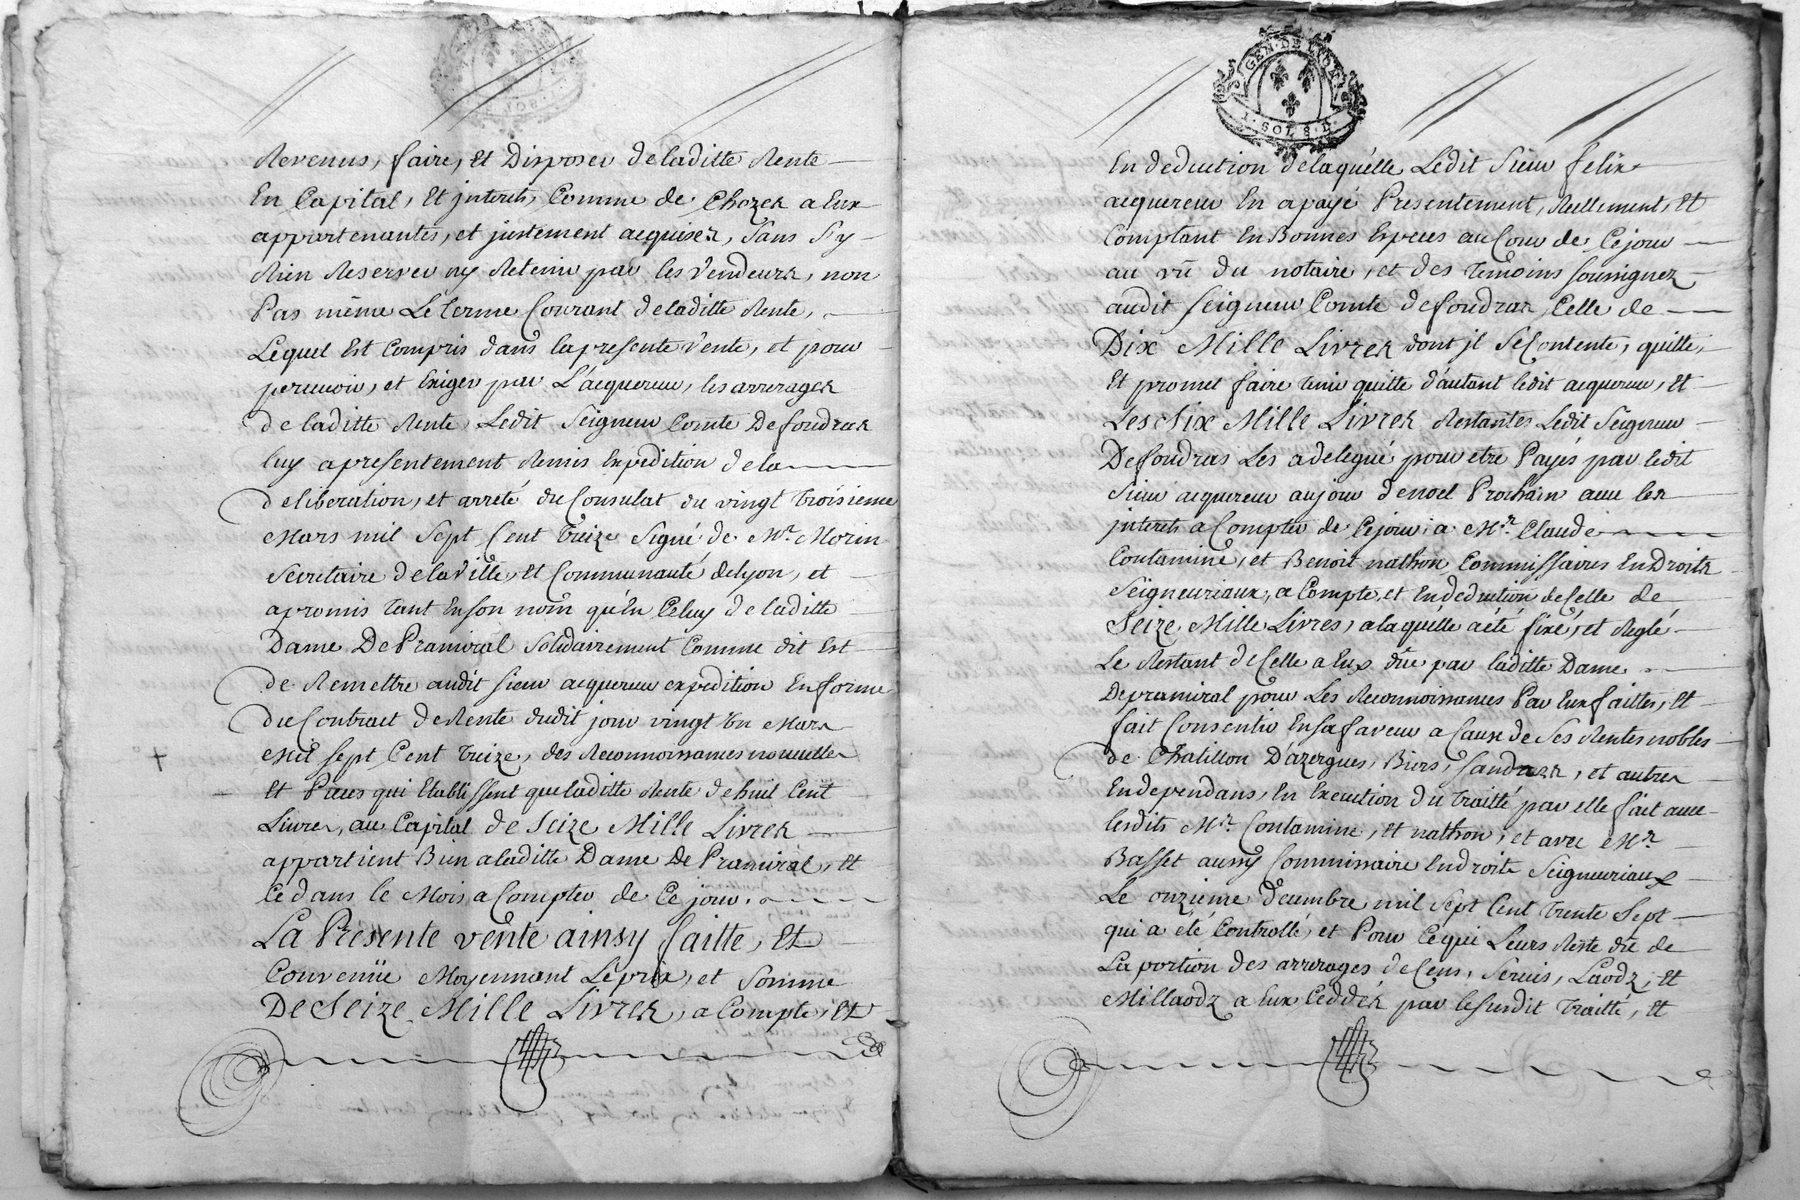 Revenus, faire, et Disposer deladitte Rente
En Capital, et jnterets, Comme de Chozes a Eux
appartenantes, et justement acquises, sans sy
Rien Reserver ny Retenir par les vendeurs, non
Pas même Le Terme Courant deladitte Rente,
Lequel Est Compris dans lapresente vente, et pour
percevoir, et Exiger par L'acquereur, les arrerages
de laditte Rente, Ledit Seigneur Comte Defoudras
luy apresentement Remis Expedition dela
deliberation, et arreté du Consulat du vingt troisieme
Mars mil sept Cent Treize signé de Mr. Morin
Secretaire delaville, et Communauté delyon, et
apromis tant Enson nom qu'En Celuy deladitte
Dame DePramiral solidairement Comme dit Est
de Remettre audit sieur acquereur expedition Enforme
du Contract deRente dudit jour vingt Un Mars
Mil sept Cent Treize, des Reconnoissances nouvelles
Et Pieces qui Etablissent queladitte Rente dehuit Cent
Livres, au Capital de Seize Mille Livres
appartient Bien aladitte Dame De Pramiral, Et
Ce dans le Mois a Compter de Ce jour.
La Presente vente ainsy faitte, Et
Convenüe Moyennant Leprix, et Somme
DeSeize Mille Livres, a Compte, Et
GEN. DE LYON
1. SOL 8. D.
En deduction delaquélle Ledit Sieur felix
acquereur En apayé Presentement, Reellement, Et
Comptant EnBonnes Especes au Cour de Cejour
au vü du notaire, et des temoins soussignez
audit Seigneur Comte defoudras, Celle de
Dix Mille Livres dont jl seContente, quitte,
Et promet faire tenir quitte d'autant ledit acquereur, Et
Les Six Mille Livres Restantes Ledit Seigneur
Defoudras Les adelegué pour etre Payés par ledit
Sieur acquereur aujour denoel Prochain avec les
jnterets a Compter de Cejour, a Mr. Claude
Contamine, et Benoit nathon Commissaires EnDroits
Seigneuriaux, a Compte, et Endeduction deCelle de
Seize Mille Livres, alaquélle aété fixé, et Reglé
Le Restant deCelle a Eux düe par laditte Dame
Depramiral pour Les Reconnoissances Par Eux faittes, Et
fait Consentir Ensafaveur a Cause de Ses Rentes nobles
de Chatillon D'azergues, Biers, Sandars, et autres
Endependans, En Execution du Traitté par elle fait avec
lesdits Mrs. Contamine, Et nathon, et avec Mr.
Basset aussy Commissaire Endroits Seigneuriaux
Le onzieme Decembre mil sept Cent trente sept
qui a eté Controllé, et Pour Cequi Leurs Reste dû de
La portion des arrerages deCens, Servis, Laodz, Et
Millaodz a Eux Ceddés par lesusdit Traitté, Et